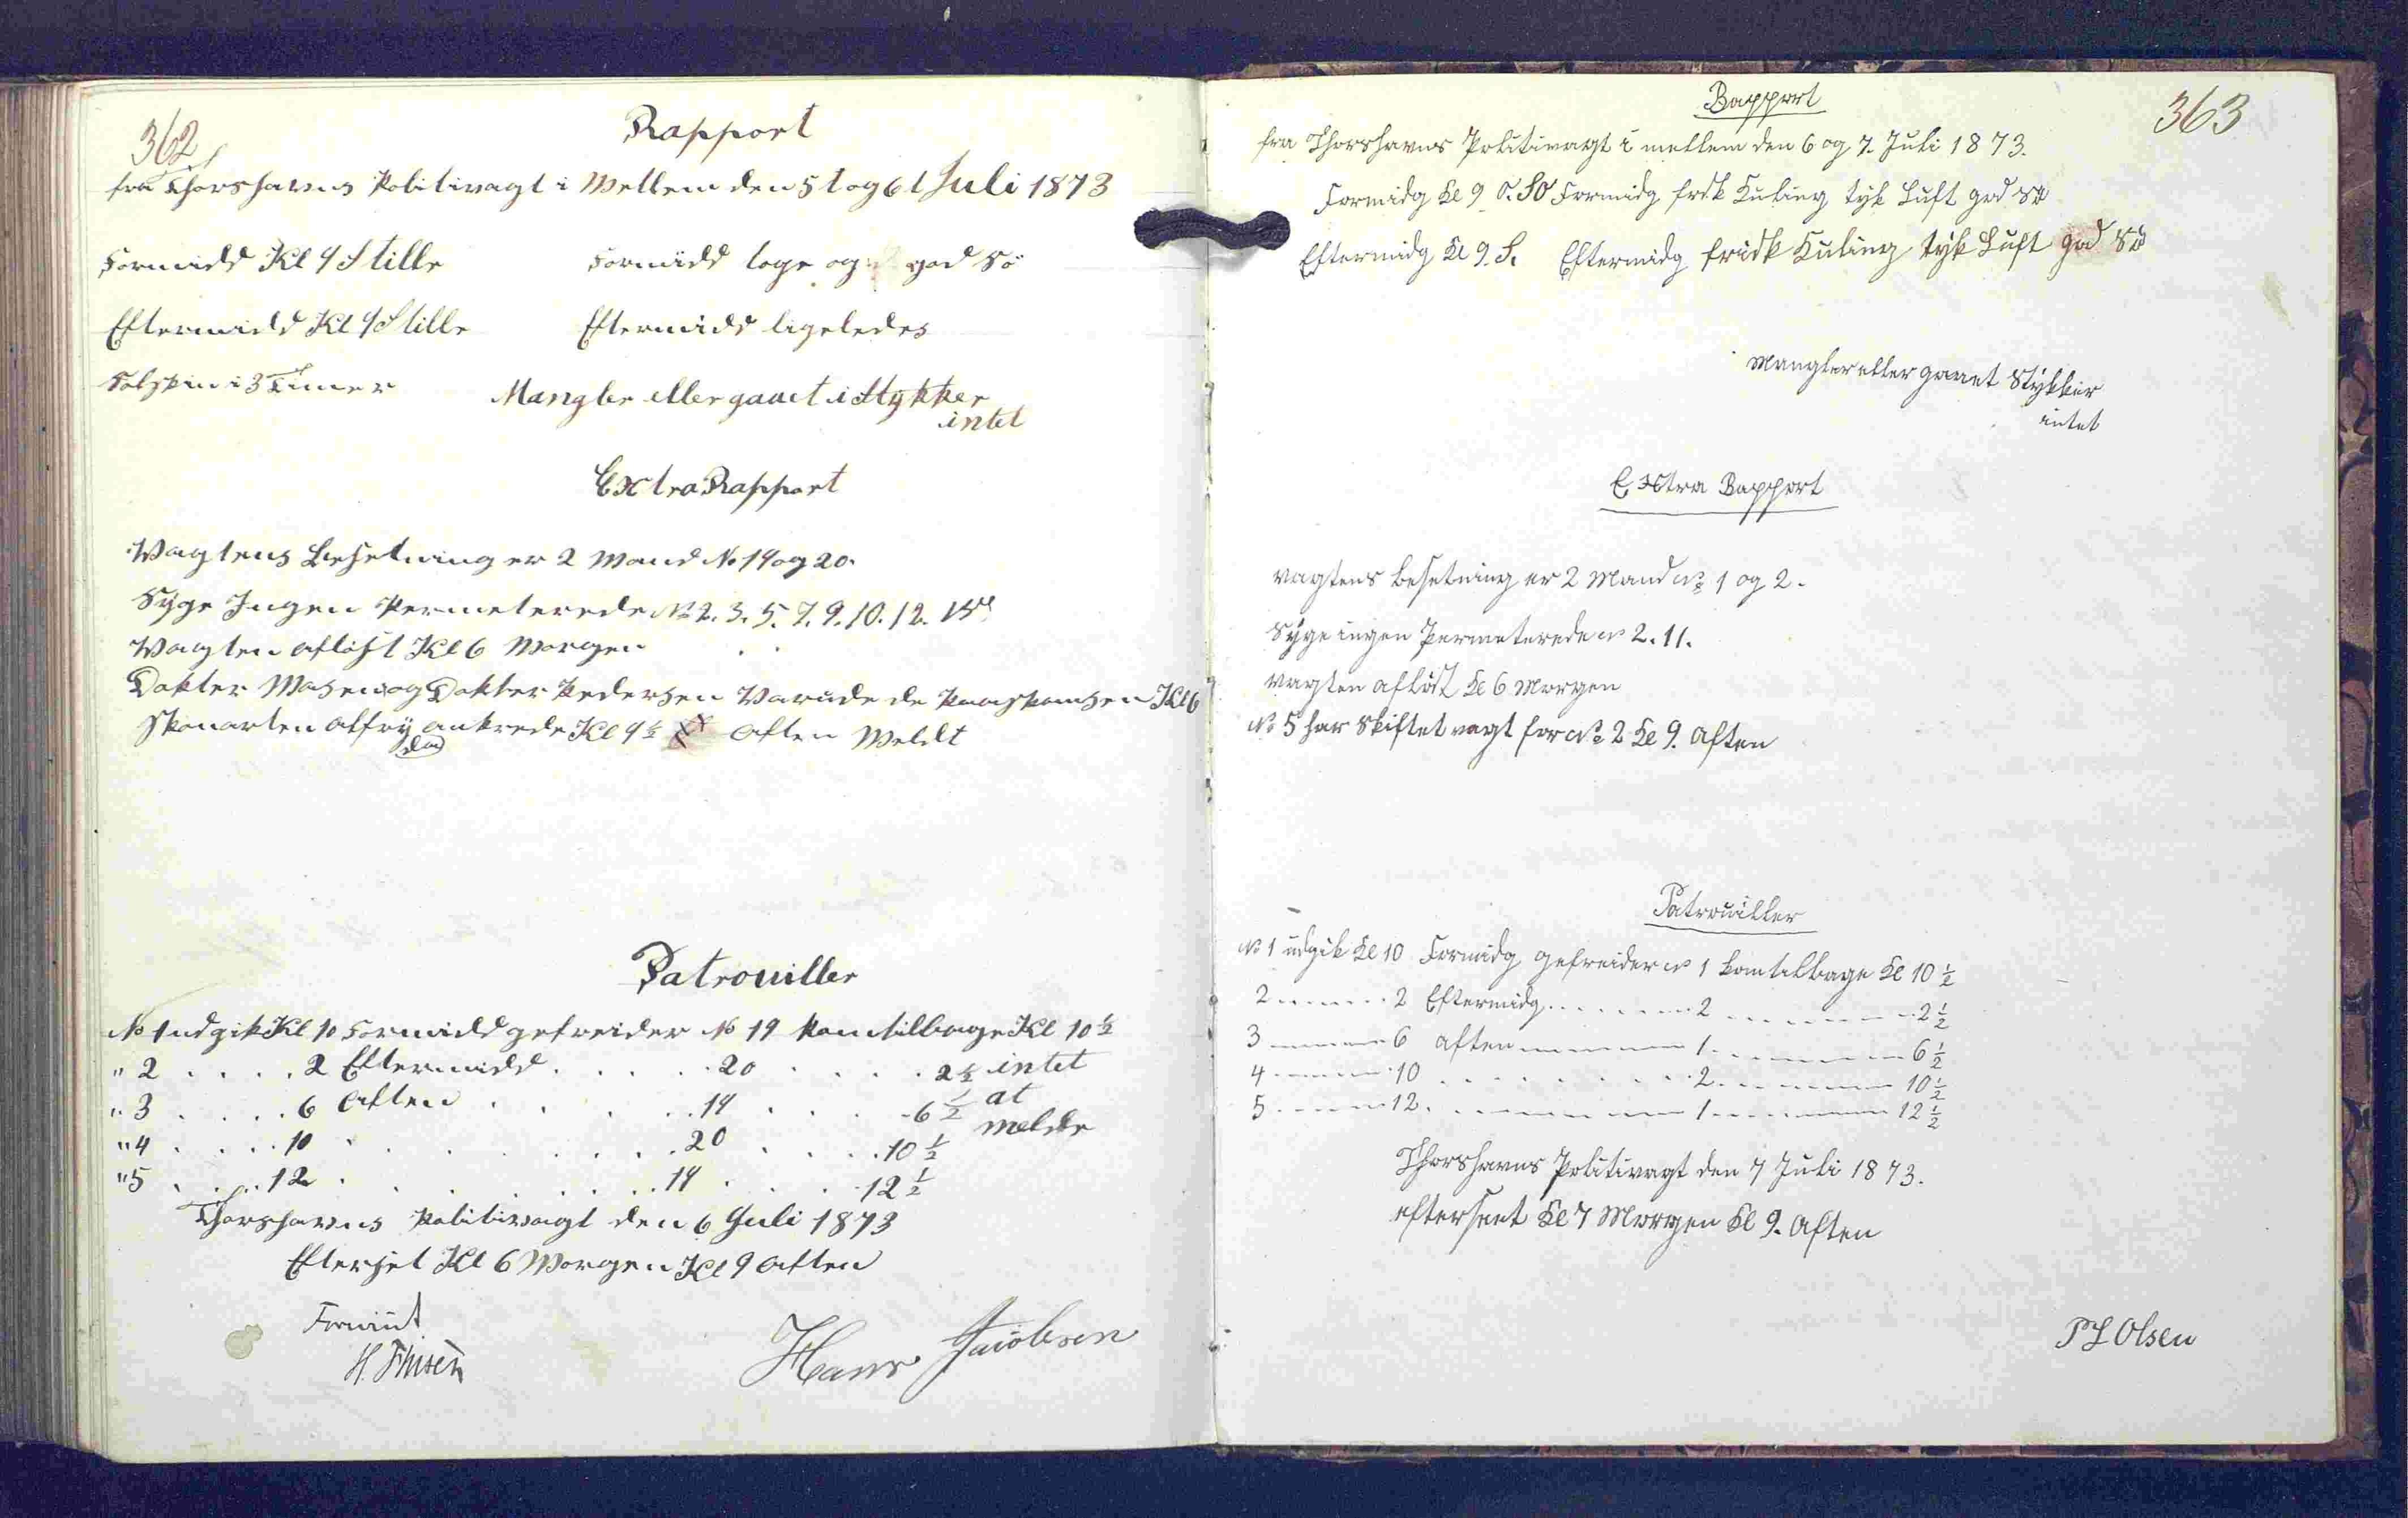 362
Rapport
fra Thorshavns Politivagt i Mellem den 5t og 6t Juli 1873
Formidd Kl 9 Stille Formidd loge og god Sö
Eftermidd Kl 9 Stille Eftermidd ligeledes
Solskin i 3 Timer Mangler eller gaaet i Stykker
intet
Extra Rapport
Vagtens Besetning er 2 Mand No 19 og 20.
Syge Ingen Permeterede No 2. 3. 5. 7. 9. 10. 12.
Vagten aflöst Kl 6 Morgen
Dokter Masen og Dokter Pedersen Kl 6
ankrede Kl 9½ Aften Meldt
Patrouiller
No 1 udgik Kl 10 Formidd gefreider No 19 kom tilbage Kl 10½
" 2 . . . . 2 Eftermidd . . . . . 20 . . . . . 2½ intet
" 3 . . . . 6 Aften . . . . . 19 . . . . 6½ at
" 4 . . . . 10 . . . . . . . 20 . . . . 10½ melde
" 5 . . . . 12 . . . . . . . 19 . . . . 12½
Thorshavns Politivagt den 6 Juli 1873
Efterset Kl 6 Morgen Kl 9 Aften
Hans Jacobsen
363
Rapport
fra Thorshavns Politivagt i mellem den 6 og 7. Juli 1873.
Formidg Kl 9 O. SO Formidg frisk Kuling tyk Luft god Sö
Eftermidg Kl 9. S. Eftermidg frisk Kuling tyk Luft god Sö
Mangler eller gaaet Stykker
intet
Extra Rapport
vagtens besetning er 2 Mand No 1 og 2.
Syge ingen Permeterede No 2. 11.
vagten aflöst Kl 6 Morgen
No 5 har skiftet vagt for No 2 Kl 9. Aften
Patrouiller
No 1 udgik Kl 10 Formidg gefreider No 1 kom tilbage Kl 10½
2 . . . . 2 Eftermidg . . . . . 2 . . . . . 2½
3 . . . . 6 aften . . . . . 1 . . . . . 6½
4 . . . . 10 . . . . . . . 2 . . . . . 10½
5 . . . . 12 . . . . . . . 1 . . . . . 12½
Thorshavns Politivagt den 7 Juli 1873.
efterseet Kl 7 Morgen Kl 9. Aften
P L Olsen